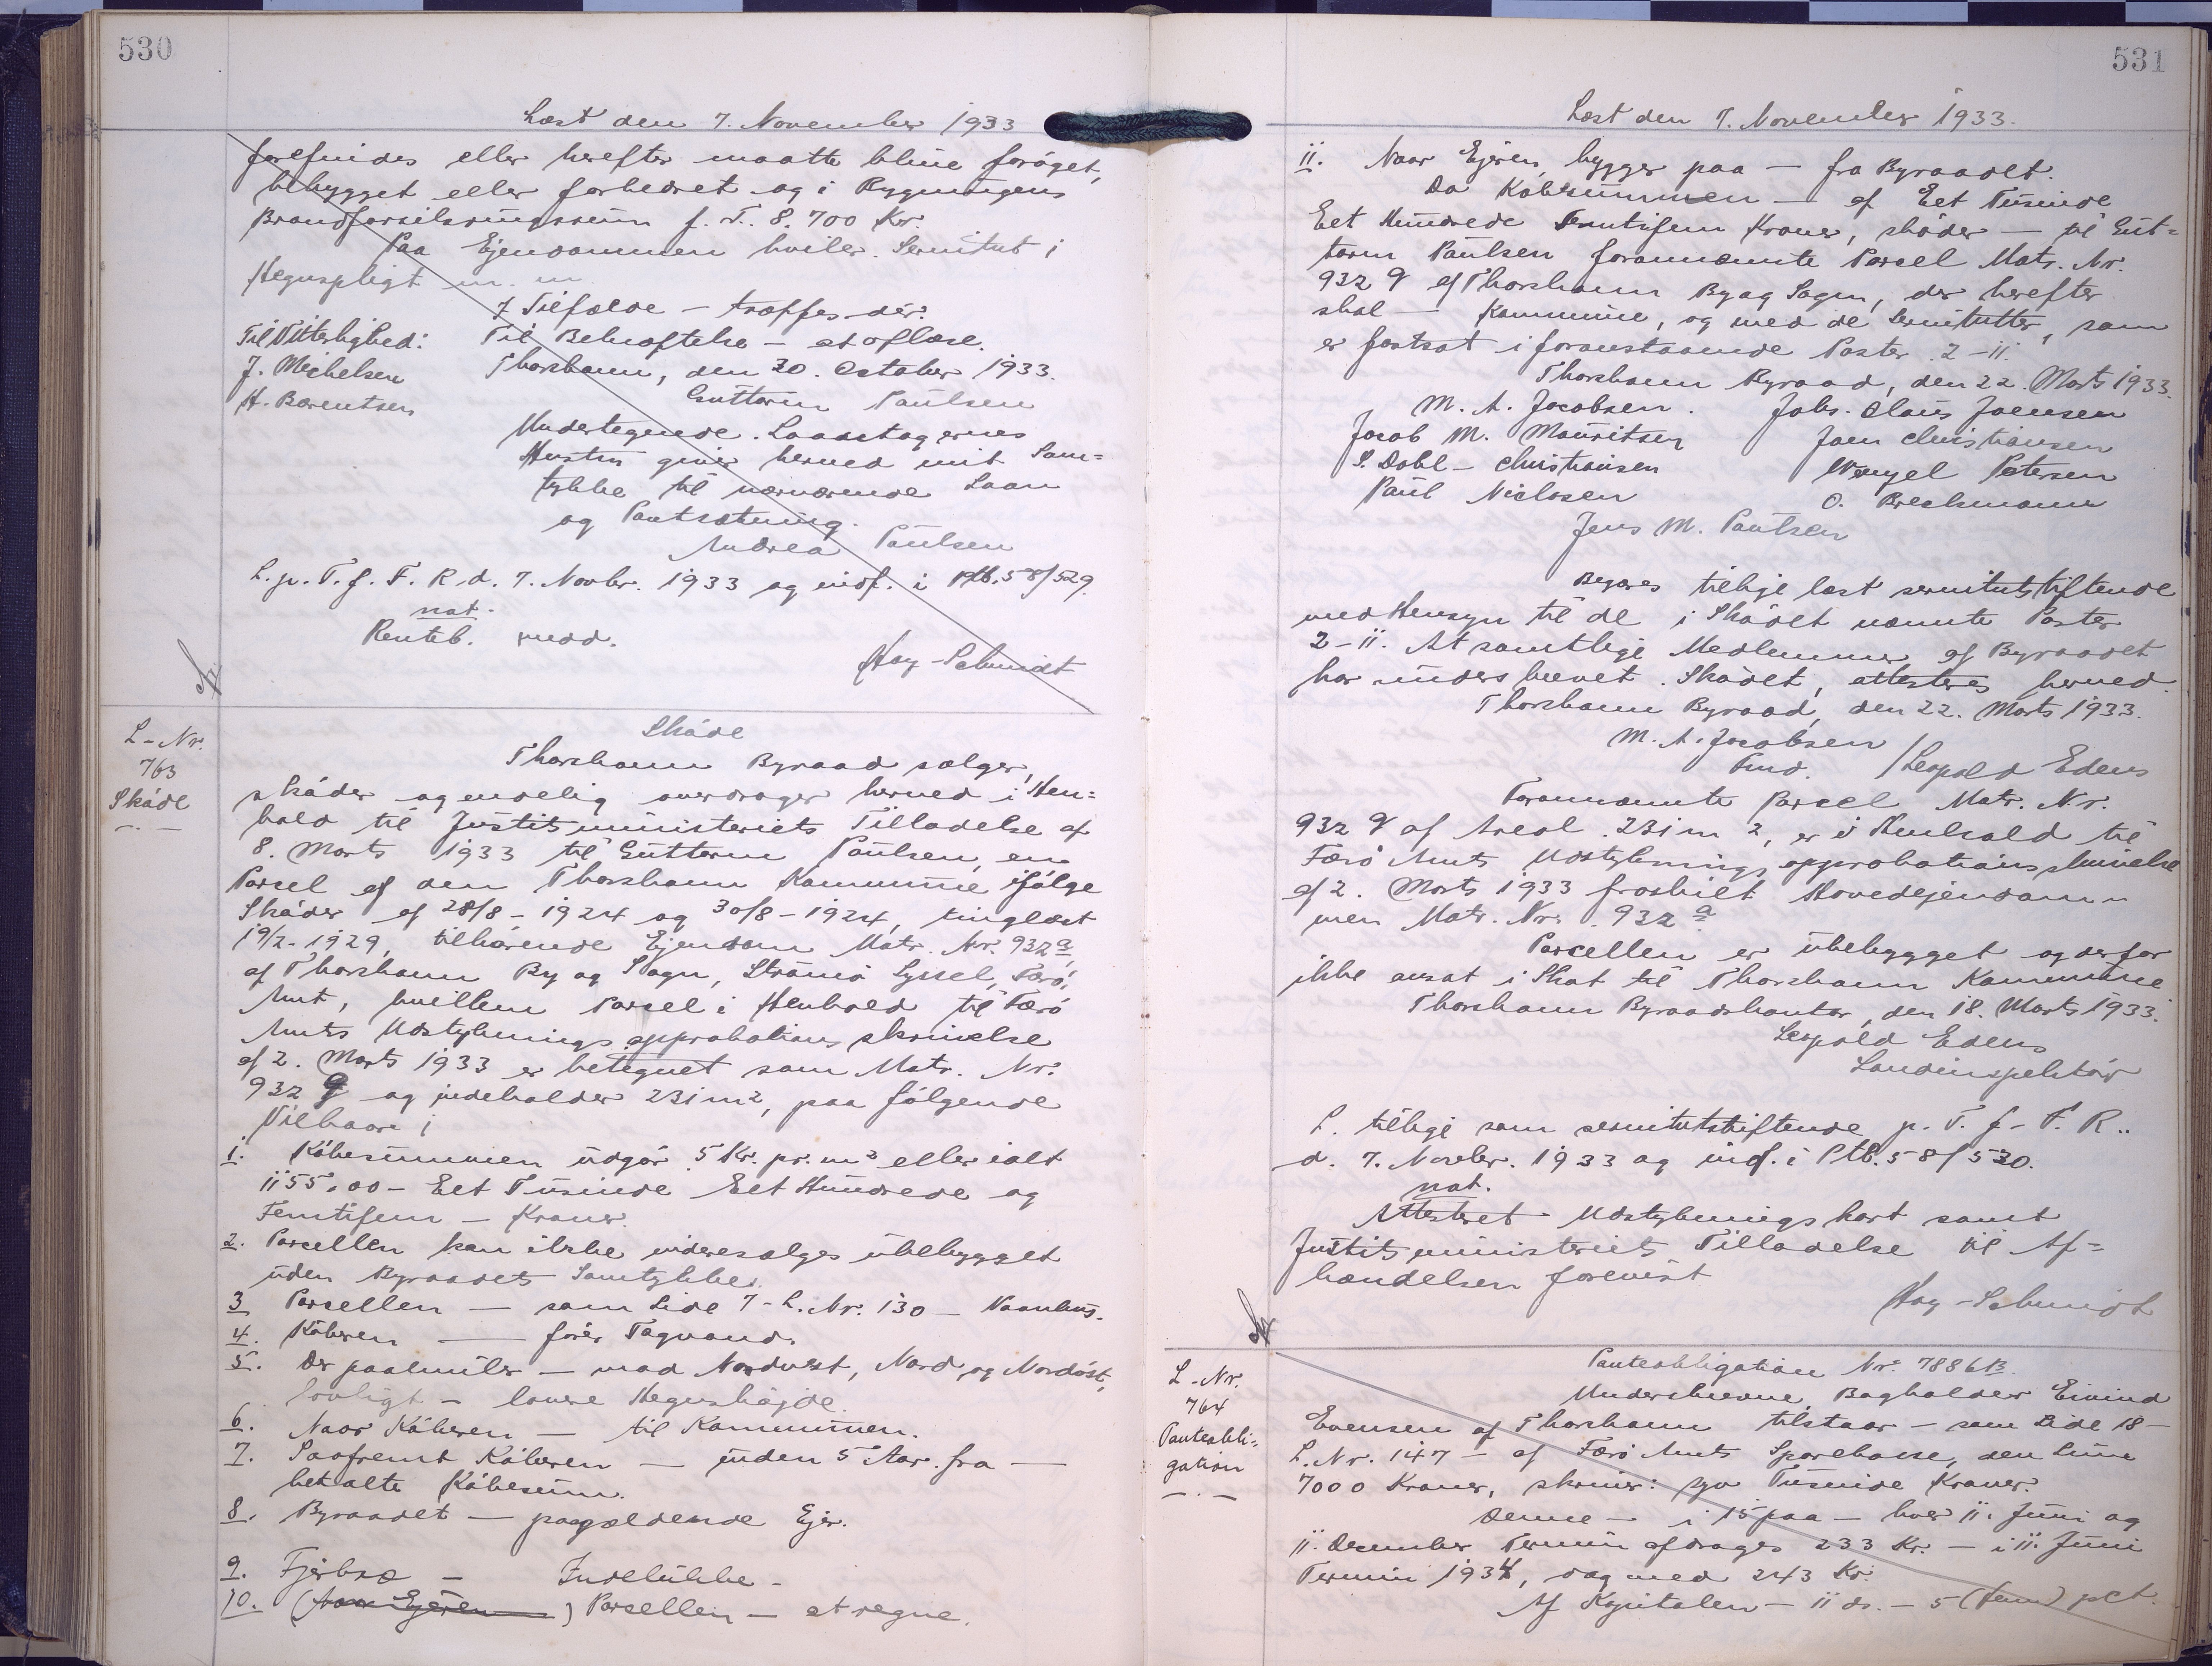 530
Læst den 7. November 1933
forefindes eller herefter maatte blive forøget,
bebygget eller forbedret og i Bygningens
Brandforsikringssum p. T. 8.700 Kr.
Paa Ejendommen hviler Servitut i
Hegnspligt m. m.
I Tilfælde — træffes dér.
Til Vitterlighed: Til Bekræftelse — at aflæse.
J. Michelsen Thorshavn, den 30. October 1933.
H. Barentsen Guttorm Paulsen
Undertegnede Laantagernes
Hustru giver herved mit Sam=
tykke til nærværende Laan
og Pantsætning.
Andrea Paulsen
L. p. T. f. F. R. d. 7. Novbr. 1933 og indf. i Ptb. 58/529.
not.
Renteb. medd.
Høy-Schmidt
L-Nr.
763
Skøde
Skøde
Thorshavn Byraad sælger,
skøder og endelig overdrager herved i Hen=
hold til Justitsministeriets Tilladelse af
8. Marts 1933 til Guttorm Paulsen en
Parcel af den Thorshavn Kommune ifølge
Skøder af 28/8 - 1924 og 30/8 - 1924, tinglæst
19/2 - 1929, tilhørende Ejendom Matr. Nr. 932a
af Thorshavn By og Sogn, Strømø Syssel, Færø
Amt, hvilken Parcel i Henhold til Færø
Amts Udstyknings approbations skrivelse
af 2. Marts 1933 er betegnet som Matr. Nr.
932 q og indeholder 231 m2, paa følgende
Vilkaar:
1. Købesummen udgør 5 Kr. pr. m2 eller ialt
1155,00 - Eet Tusinde Eet Hundrede og
Femtifem - Kroner.
2. Parcellen kan ikke videresælges ubebygget
uden Byraadets Samtykke.
3 Parcellen — som Side 7 - L. Nr. 130 - Vaanhus.
4. Køberen — fører Tagvand.
5. Der paahviler — mod Nordvest, Nord og Nordøst,
lovligt - lavere Hegnshøjde.
6. Naar Køberen — til Kommunen.
7. Saafremt Køberen — inden 5 Aar fra —
betalte Købesum.
8. Byraadet — paagældende Ejer.
9. Fjerkræ — Indelukke -
10. (Naar Ejeren) Parcellen — at regne.
531
Læst den 7. November 1933.
11. Naar Ejeren bygger paa — fra Byraadet.
Da Købesummen — af Eet Tusinde
Eet Hundrede Femtifem Kroner, skøder — til Gut=
torm Paulsen forannævnte Parcel Matr. Nr.
932 q af Thorshavn By og Sogn, der herefter
skal — Kommune, og med de Servitutter, som
er fastsat i foranstaaende Poster 2-11.
Thorshavn Byraad, den 22. Marts 1933.
M. A. Jacobsen. Johs. Claus Joensen
Jacob M. Mouritsen Joen Christiansen
S. Dahl-Christiansen Wenzel Petersen
Paul Niclasen O. Brechmann
Jens M. Poulsen
Begæres tillige læst servitutstiftende
med Hensyn til de i Skødet nævnte Poster
2-11. At samtlige Medlemmer af Byraadet
har underskrevet Skødet, attesteres herved.
Thorshavn Byraad, den 22. Marts 1933.
M. A. Jacobsen
Fmd. / Leopold Edens
Forannævnte Parcel Matr. Nr.
932 q af Areal 231 m2, er i Henhold til
Færø Amts Udstyknings approbations skrivelse
af 2. Marts 1933 fraskilt Hovedejendom=
men Matr. Nr. 932 a
Parcellen er ubebygget og derfor
ikke ansat i Skat til Thorshavn Kommune
Thorshavn Byraadskontor, den 18. Marts 1933.
Leopold Edens
Landinspektør
L. tillige som servitutstiftende p. T. f. F. R..
d. 7. Novbr. 1933 og indf. i Ptb. 58/530.
not.
Attesteret Udstyknings kort samt
Justitsministeriets Tilladelse til Af=
hændelsen forevist
Høy-Schmidt
L-Nr.
764
Panteobli=
gation
Panteobligation Nr. 7886B.
Underskrevne Bagholder Eivind
Evensen af Thorshavn tilstaar — som Side 18 —
L. Nr. 147 — af Færø Amts Sparekasse, den Sum
7000 Kroner, skriver: syv Tusinde Kroner.
Denne — i 15 paa — hver 11. Juni og
11. December Termin afdrages 233 Kr. — i 11. Juni
Termin 1934, dog med 243 Kr.
Af Kapitalen — 11 ds. — 5 (fem) pct.